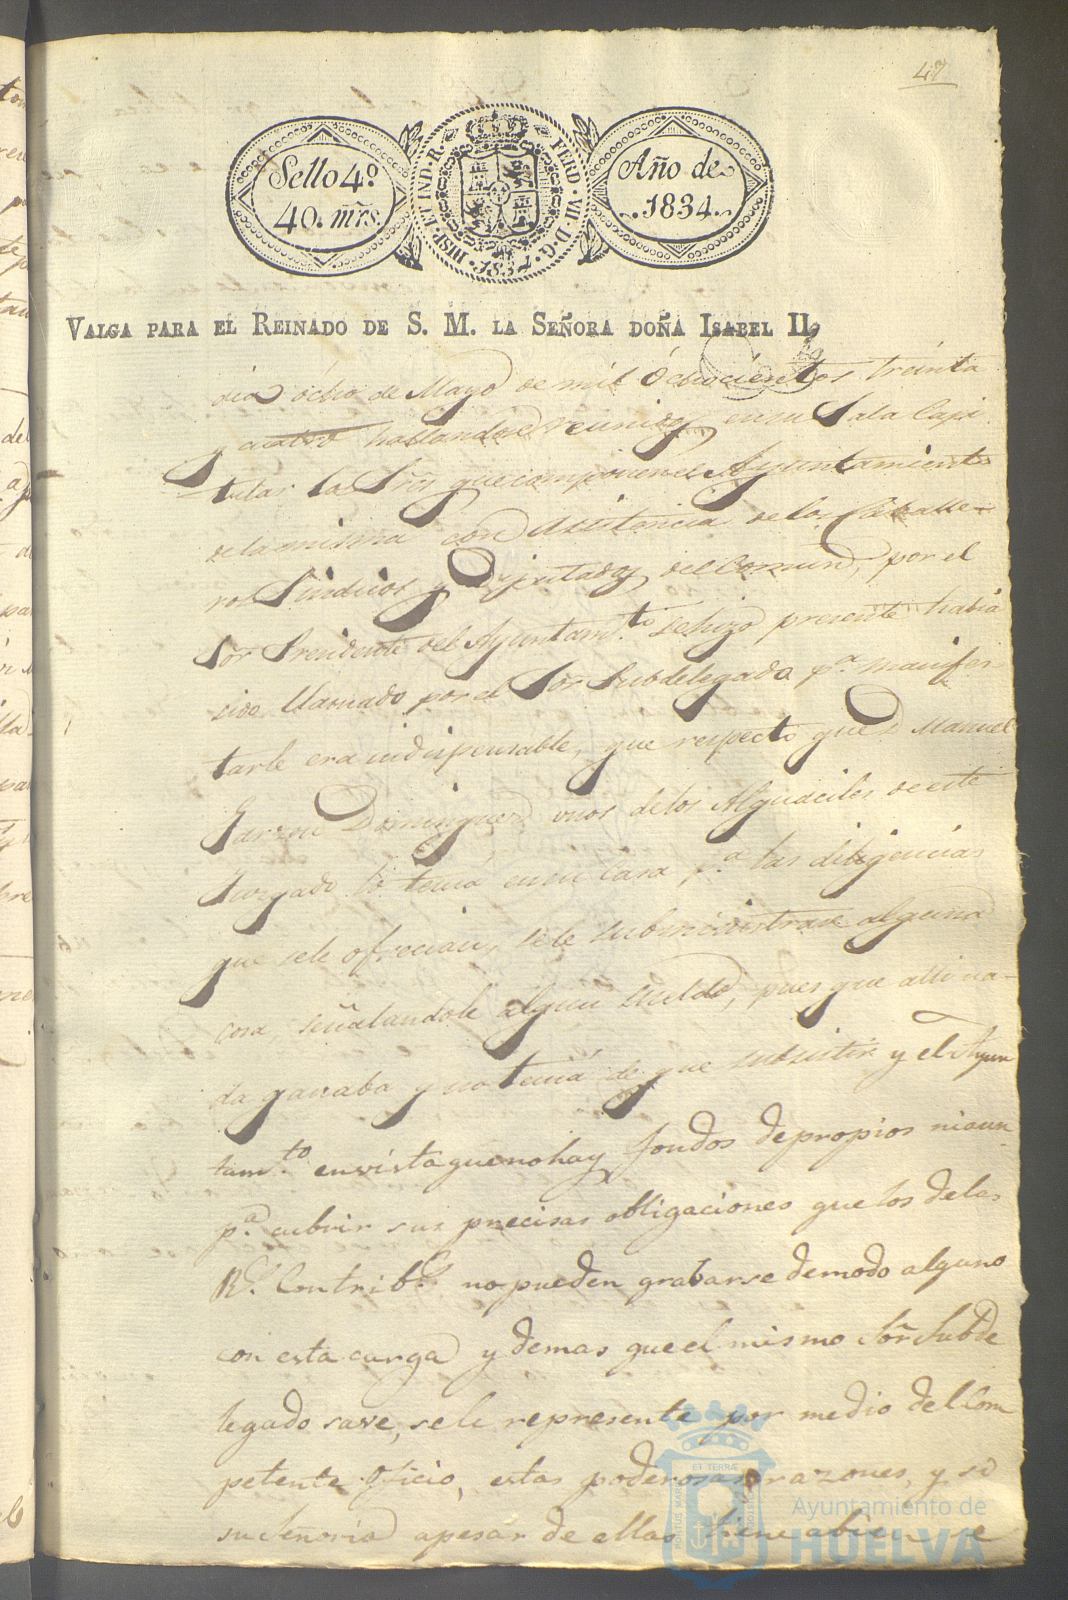 47
Sello 4º
40. mrs.
HISP. ET IND. R. FERD. VII. D. G. 1834.
Año de
1834.
VALGA PARA EL REINADO DE S. M. LA SEÑORA DOÑA ISABEL II.
dia ócho de Mayo de mil óchocientos treinta
y cuatro hallandose reunidos en su Sala Capi
tular los Sres que componen el Ayuntamiento
de la misma con Asistencia de los Caballe-
ros Sindicos y Diputados del Comun, por el
Sor Presidente del Ayuntamto se hizo presente habia
sido llamado por el Sor Subdelegado pa. manifes-
tarle era indispensable, que respecto que D. Manuel
Garzon Dominguez unos de los Alguaciles de este
Juzgado lo tenia en su casa pa. las diligencias
que se le ofrecian, se le subministrase alguna
cosa, señalandole algun sueldo, pues que alli na-
da ganaba y no tenia de que subsistir y el Ayun
tamto en vista que no hay fondos de propios ni aun
pa. cubrir sus precisas obligaciones que los de las
Rs. Contribs no pueden grabarse de modo alguno
con esta carga y demas que el mismo Sor Subde
legado save, se le represente por medio del Com
petente Oficio, estas poderosas razones, y si
su Senoria apesar de ellas tiene a bien se
Ayuntamiento de
HUELVA